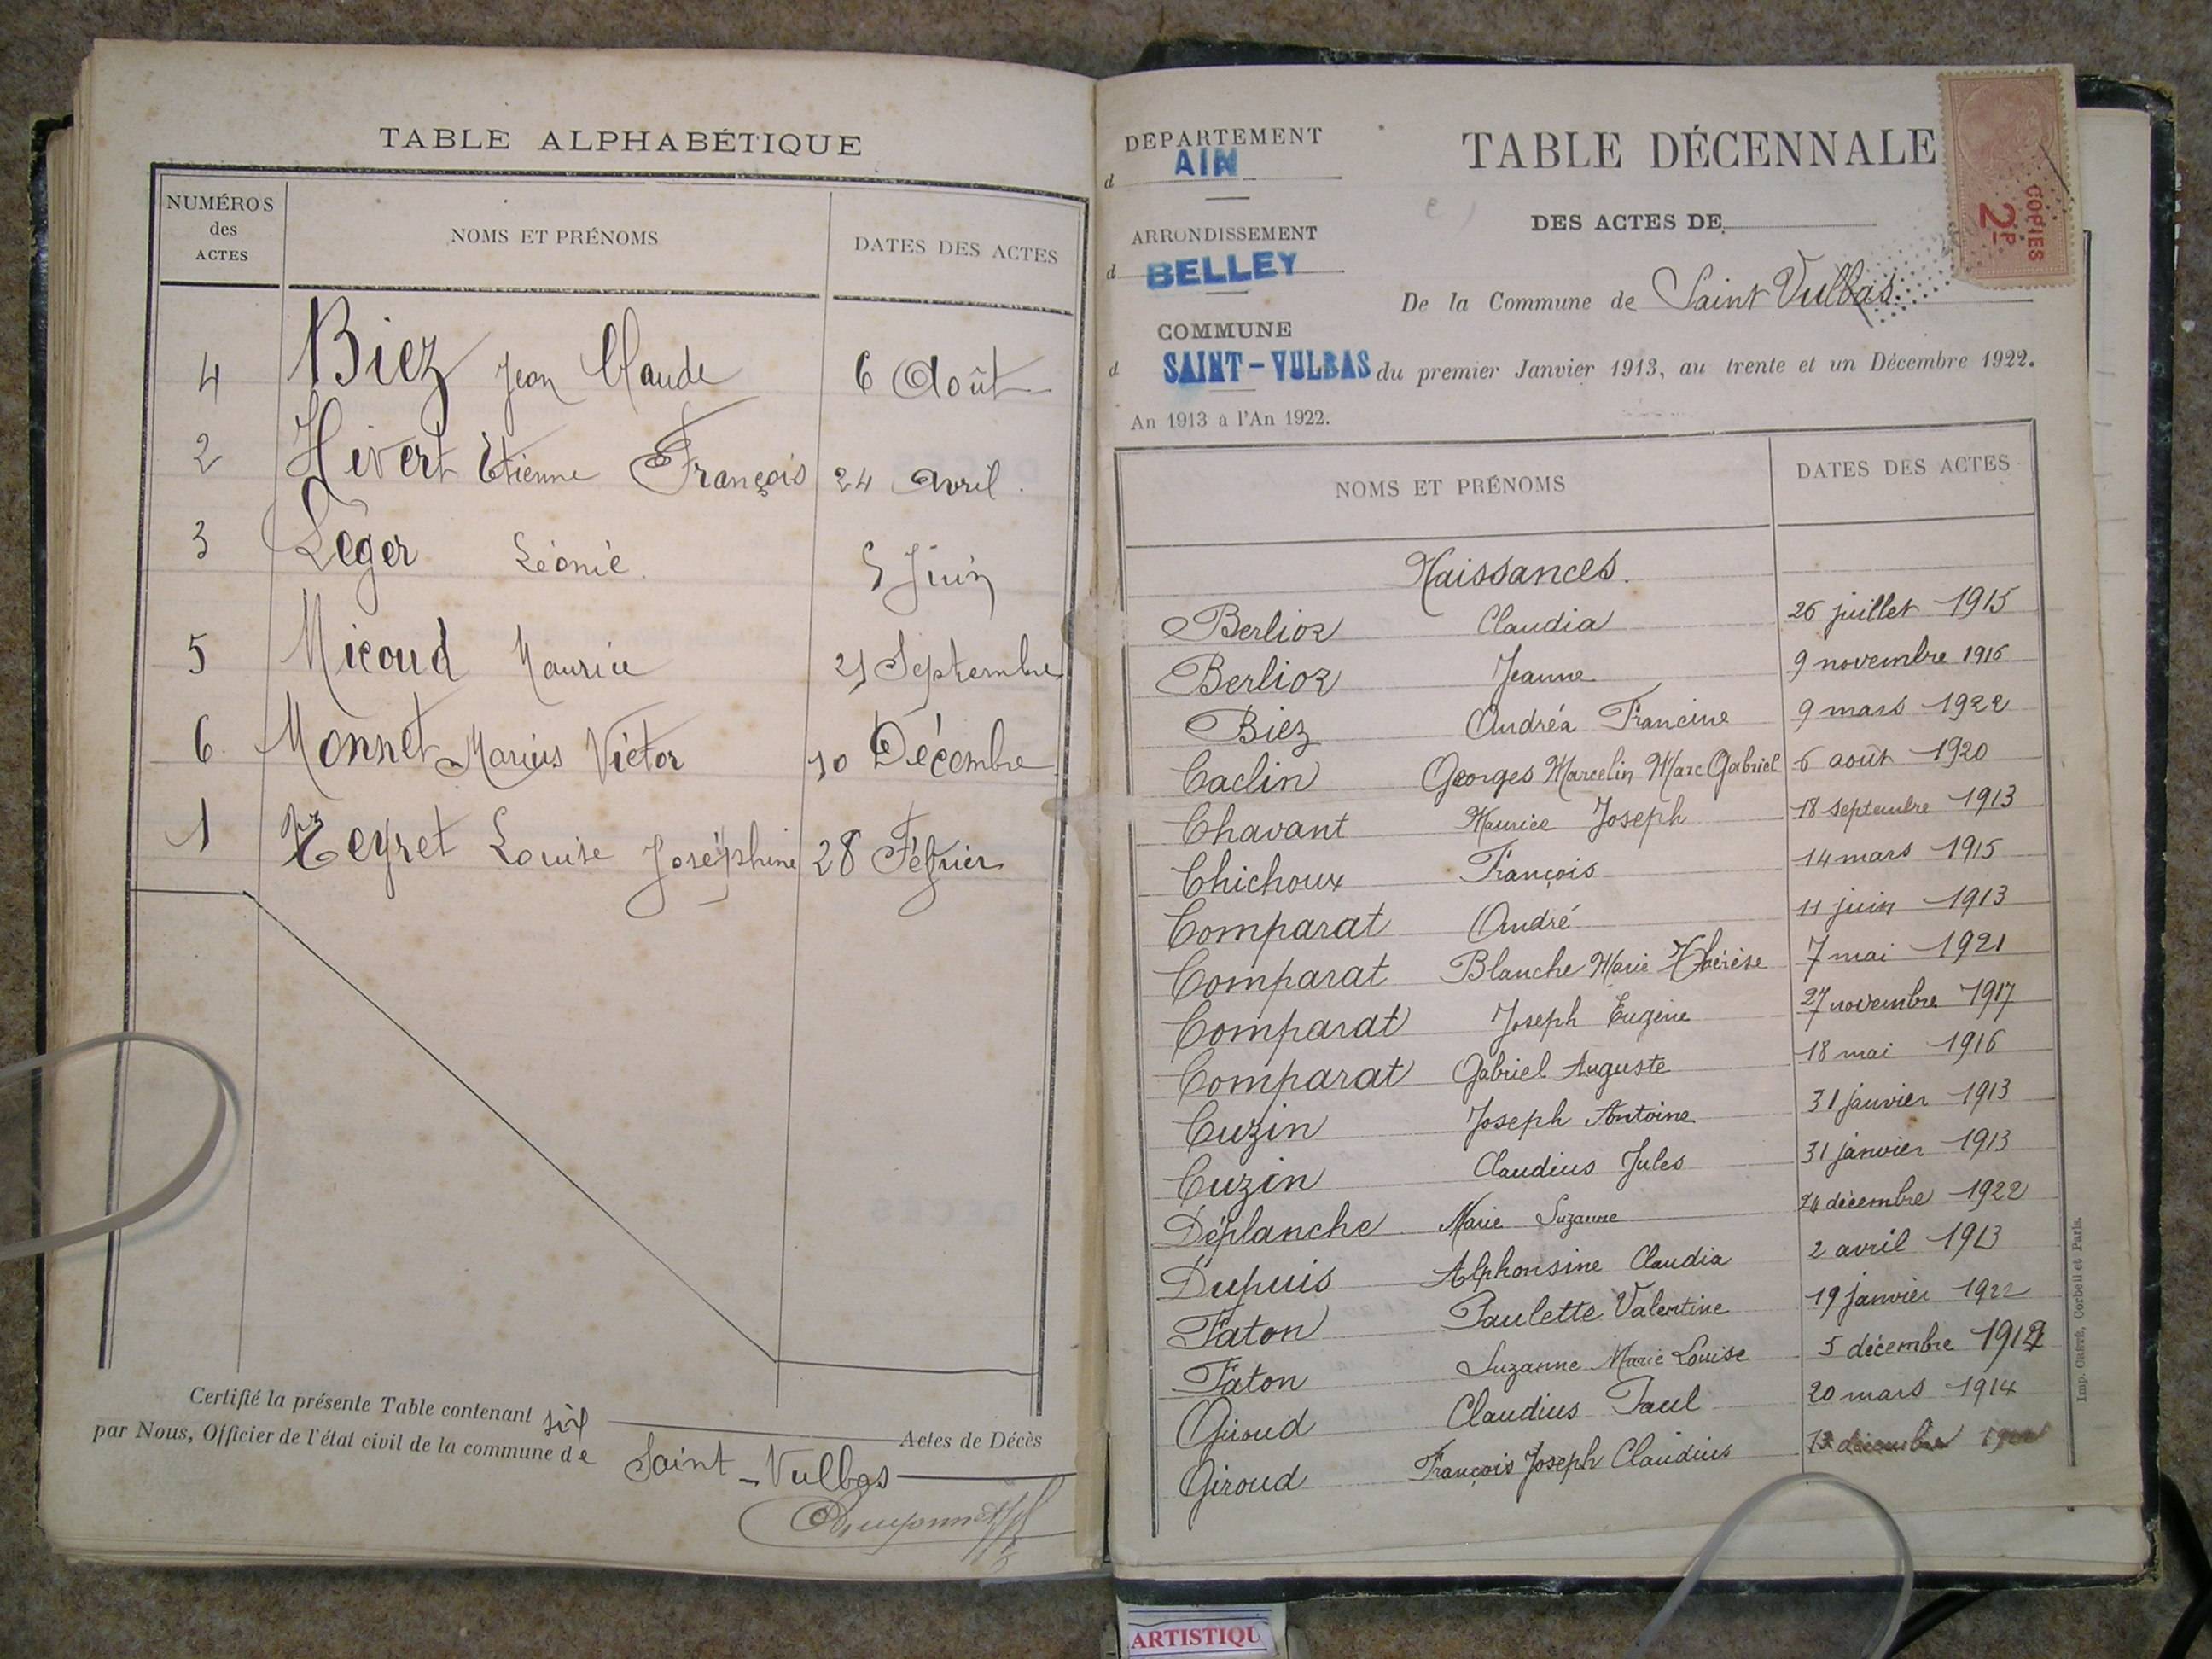 TABLE ALPHABÉTIQUE
NUMÉROS des ACTES NOMS ET PRÉNOMS DATES DES ACTES
4 Biez Jean Claude 6 Août
2 Hivert Etienne François 24 avril.
3 Léger Léonie. 5 Juin
5 Micoud Maurice 21 Septembre
6 Monnet Marius Victor 10 Décembre
1 Teyret Louise Joséphine 28 Février
Certifié la présente Table contenant six Actes de Décès
par Nous, Officier de l'état civil de la commune de Saint-Vulbas
DEPARTEMENT
d AIN
ARRONDISSEMENT
d BELLEY
COMMUNE
d SAINT-VULBAS
An 1913 à l'An 1922.
TABLE DÉCENNALE
DES ACTES DE
De la Commune de Saint Vulbas.
du premier Janvier 1913, au trente et un Décembre 1922.
COPIES
2
NOMS ET PRÉNOMS DATES DES ACTES
Naissances.
Berlioz Claudia 26 juillet 1915
Berlioz Jeanne 9 novembre 1916
Biez Andréa Francine 9 mars 1922
Caclin Georges Marcelin Marc Gabriel 6 août 1920
Chavant Maurice Joseph 18 septembre 1913
Chichoux François 14 mars 1915
Comparat André 11 juin 1913
Comparat Blanche Marie Thérèse 7 mai 1921
Comparat Joseph Eugène 27 novembre 1917
Comparat Gabriel Auguste 18 mai 1916
Cuzin Joseph Antoine 31 janvier 1913
Cuzin Claudius Jules 31 janvier 1913
Déplanche Marie Suzanne décembre 1922
Dupuis Alphonsine Claudia 2 avril 1913
Faton Paulette Valentine 19 janvier 1922
Faton Suzanne Marie Louise 5 décembre
Giroud Claudius Paul 20 mars 1914
Giroud François Joseph Claudius décembre
Imp. CRÉTÉ, Corbeil et Paris.
ARTISTIQU